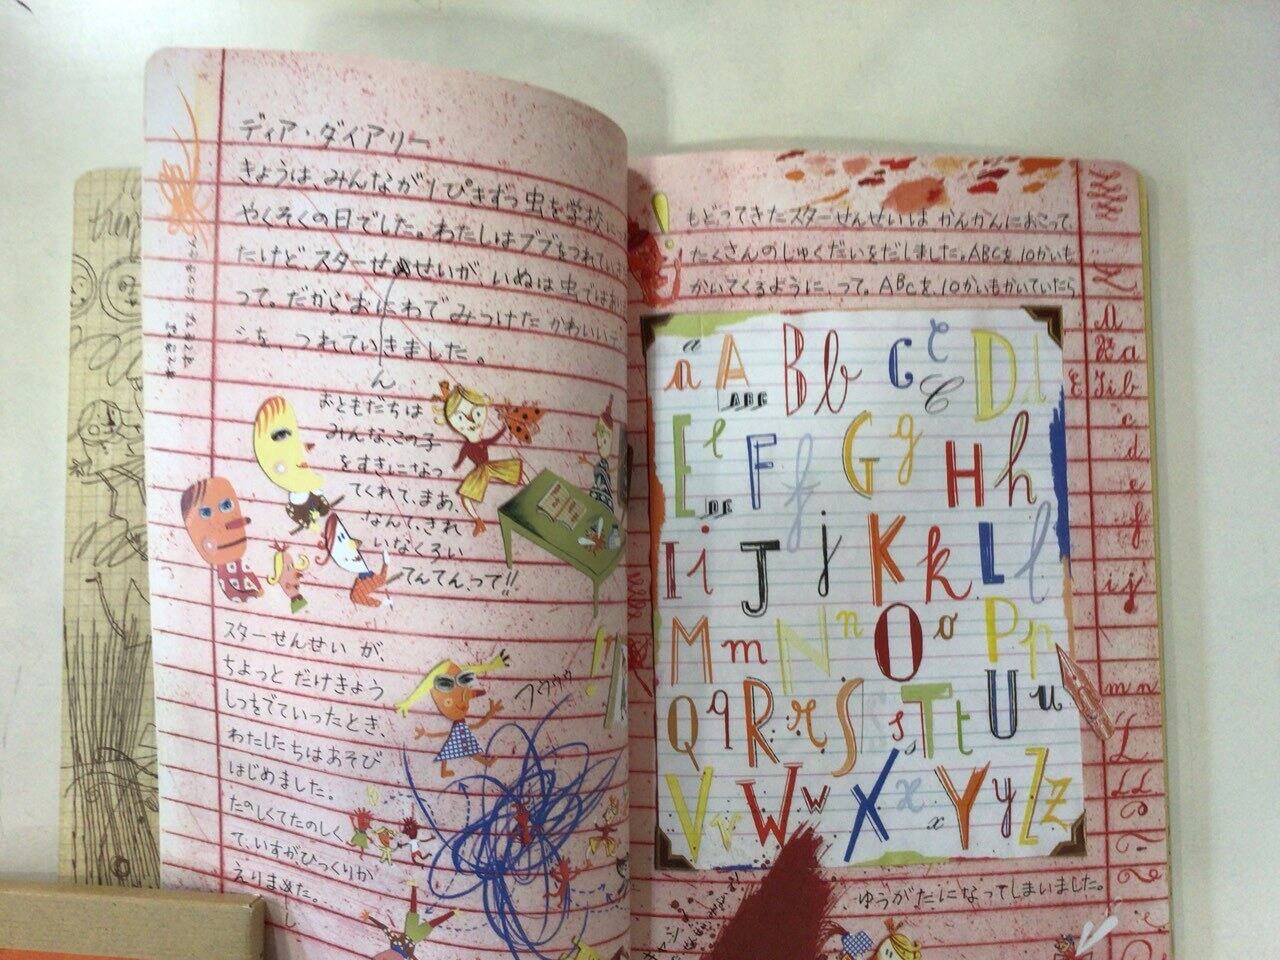 ディア・ダイアリー
きょうは、みんなが1ぴきずつ虫を学校に
やくそくの日でした。わたしはブブをつれて
たけど、スターせんせいが、いぬは虫では
って。だからおにわでみつけたかわいい
シを、つれていきました。
おともだちは
みんなこの子
をすきになっ
てくれて、まあ、
なんてきれ
いなくろい
てんてん、って!!
スターせんせいが、
ちょっとだけきょう
しつをでていったとき、
わたしたちはあそび
はじめました。
たのしくてたのしく
て、いすがひっくりか
えりました。
もどってきたスターせんせいはかんかんにおこって
たくさんのしゅくだいをだしました。ABCを、10かいも
かいてくるように、って。ABCを、10かいもかいていたら
a A a B b C c D d
ABC
E e F f G g H h
DE
I i J j K k L l
M m N n O o P p
Q q R r S s T t U u
V v W w X x x Y y Z z
ゆうがたになってしまいました。